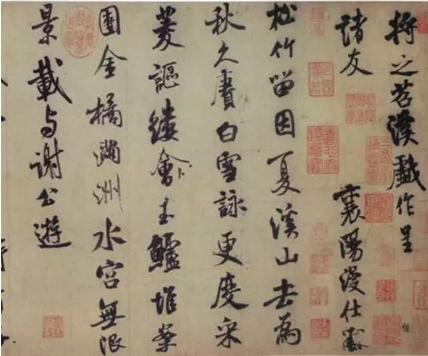 將之苕溪戲作呈
諸友
襄陽漫仕黻
松竹留因夏溪山去為
秋久賡白雪詠更度采
菱謳縷會玉鱸堆案
團金橘滿洲水宮無限
景載與謝公遊